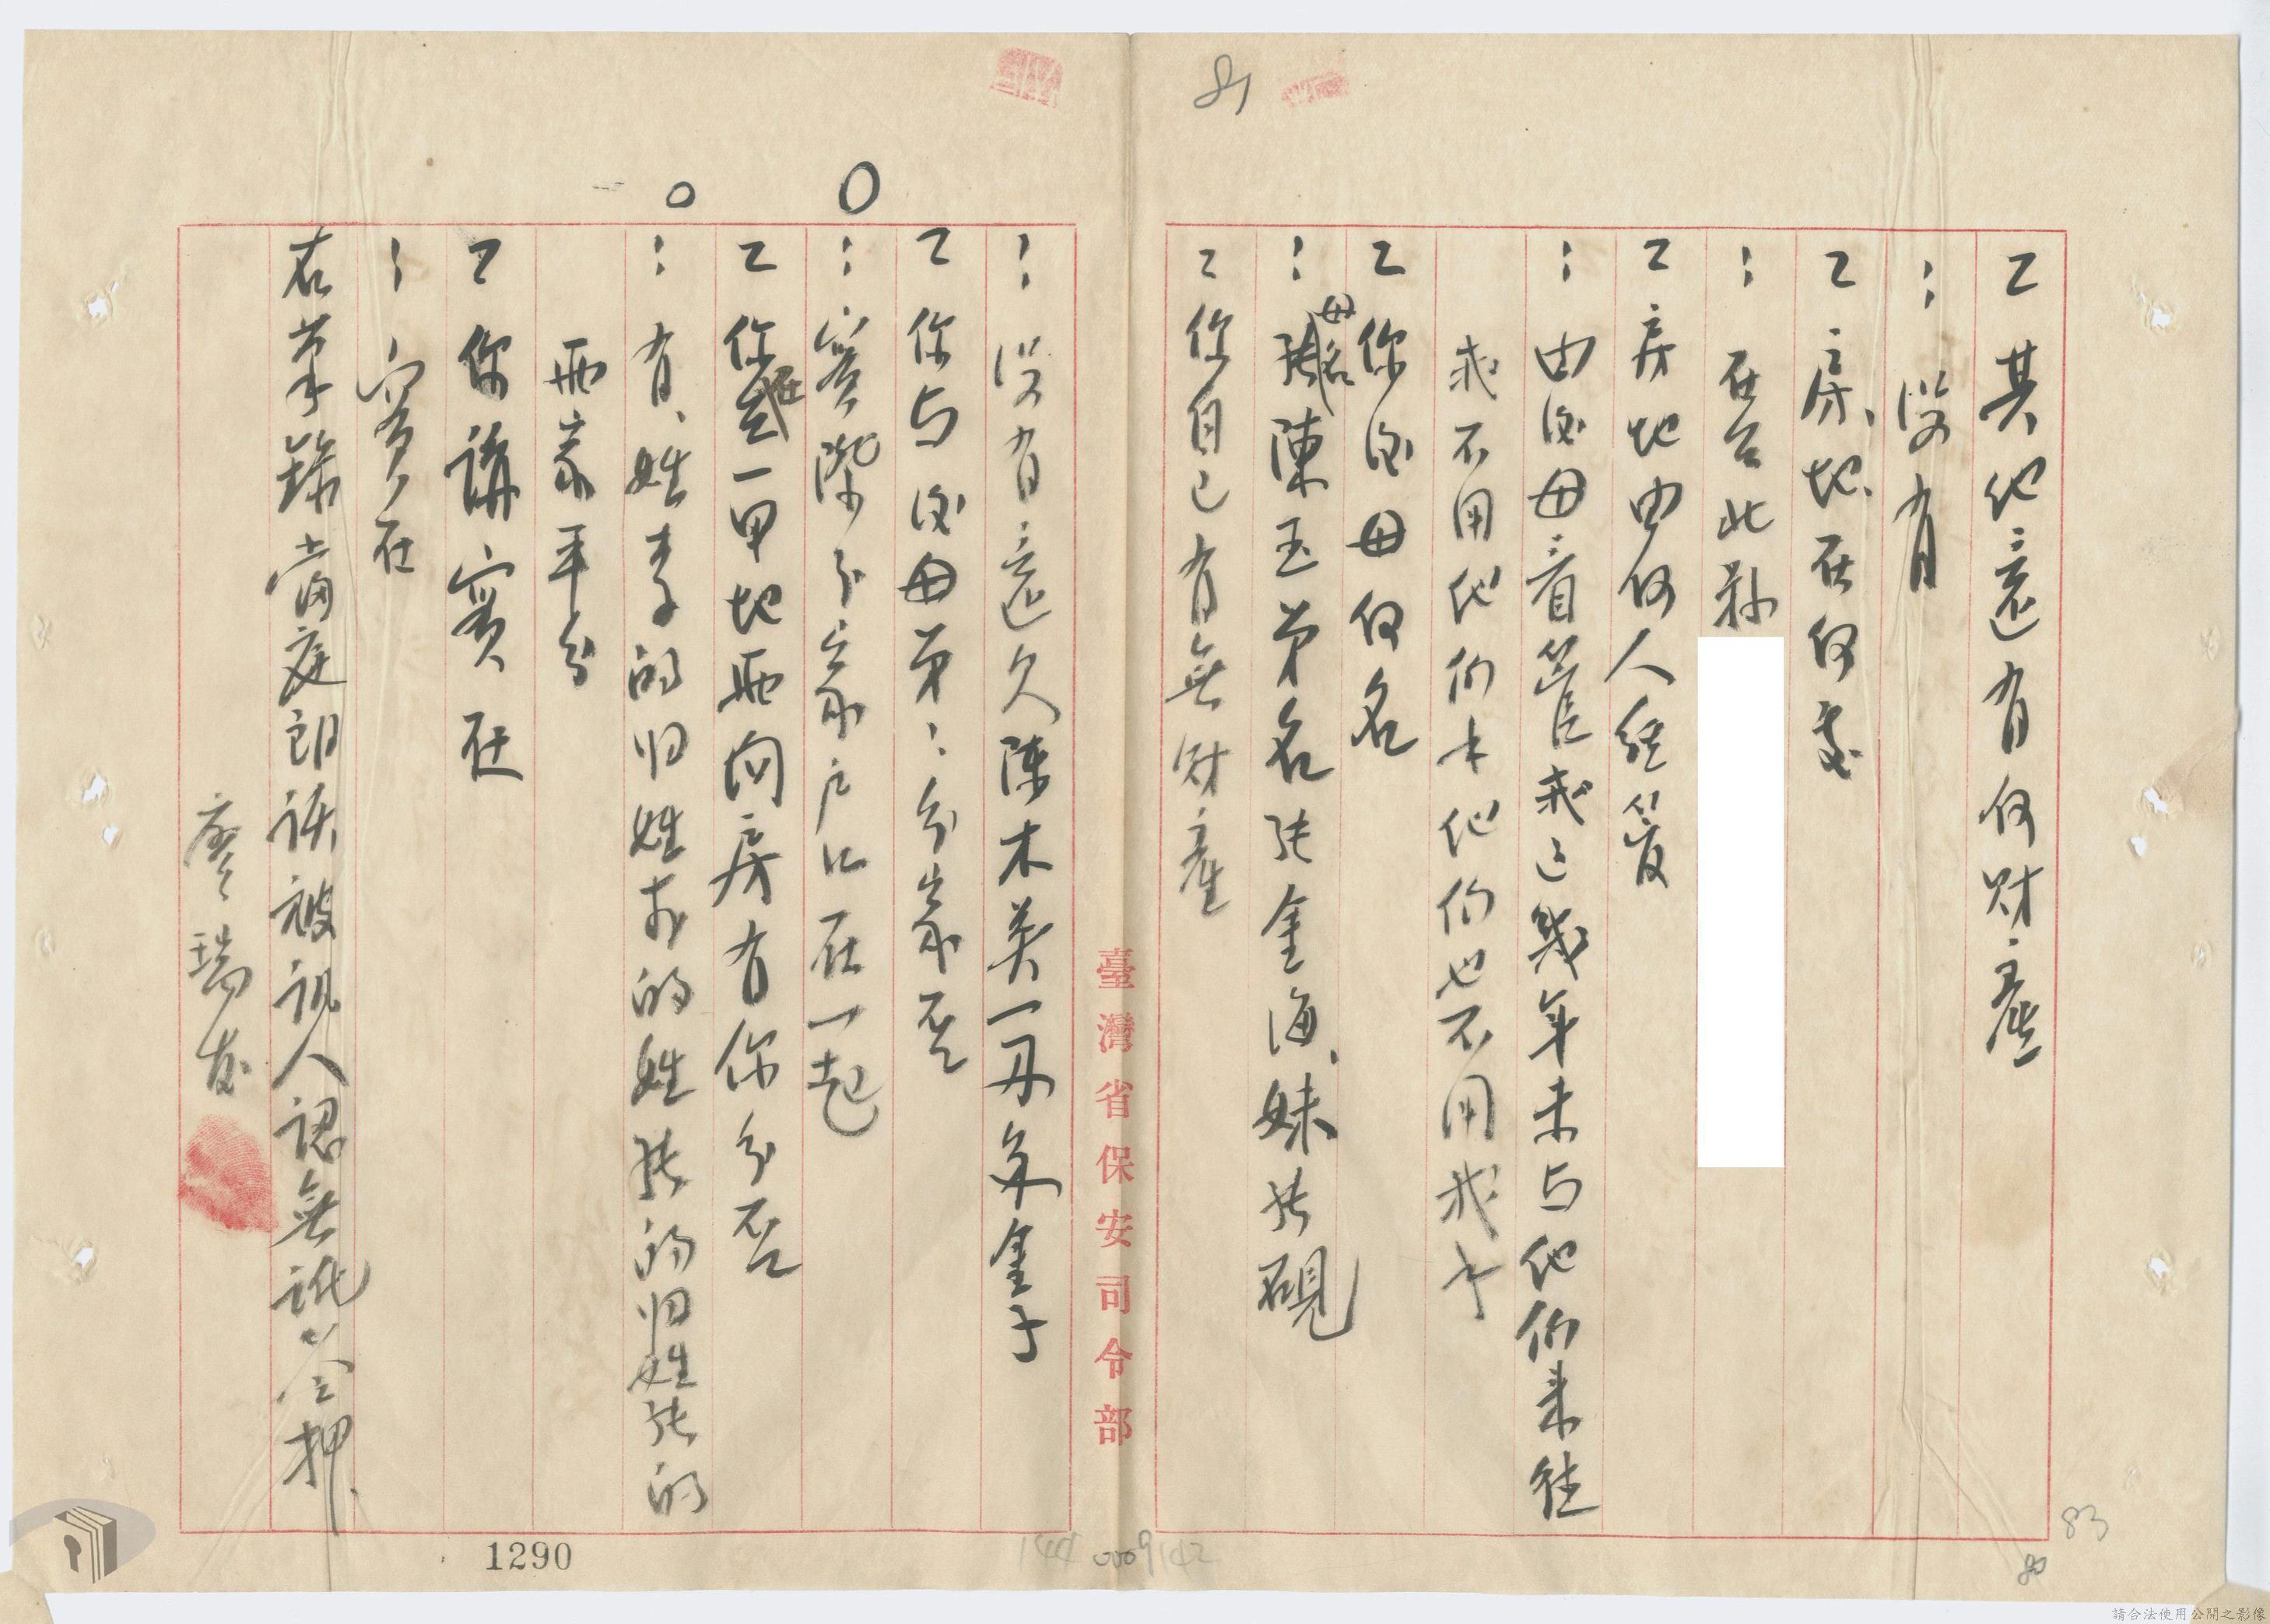 81
乙其他還有何財產
：沒有
乙房、地、在何處
：在台北縣
乙房地由何人經管
：由後母看管我這幾年未与他們來往
我不用他們卡他們也不用我卡
乙你後母何名
：母名陳玉弟名张金海、妹张硯
乙你自己有無財產
臺灣省保安司令部
：沒有還欠陳木英一丹多金子
乙你与後母弟：分家否
：實際分家户口在一起
乙你在一甲地兩间房有你分否
：有、姓李的归姓李的姓张的归姓张的
兩家平分
乙你講實在
：實在
右筆錄當庭朗誦被訊人認無訛始簽押
廖瑞發
1290
144
0009142
83
80
請合法使用公開之影像